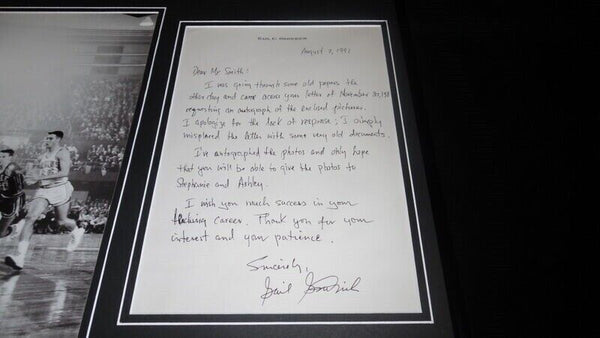 GAIL C. GOODRICH
August 7, 1991
Dear Mr. Smith:
I was going through some old papers the
other day and came across your letter of November 30, 198
requesting an autograph of the enclosed pictures.
I apologize for the lack of response; I simply
misplaced the letter with some very old documents.
I've autographed the photos and only hope
that you will be able to give the photos to
Stephanie and Ashley.
I wish you much success in your
teaching career. Thank you for your
interest and your patience.
Sincerely,
Gail Goodrich